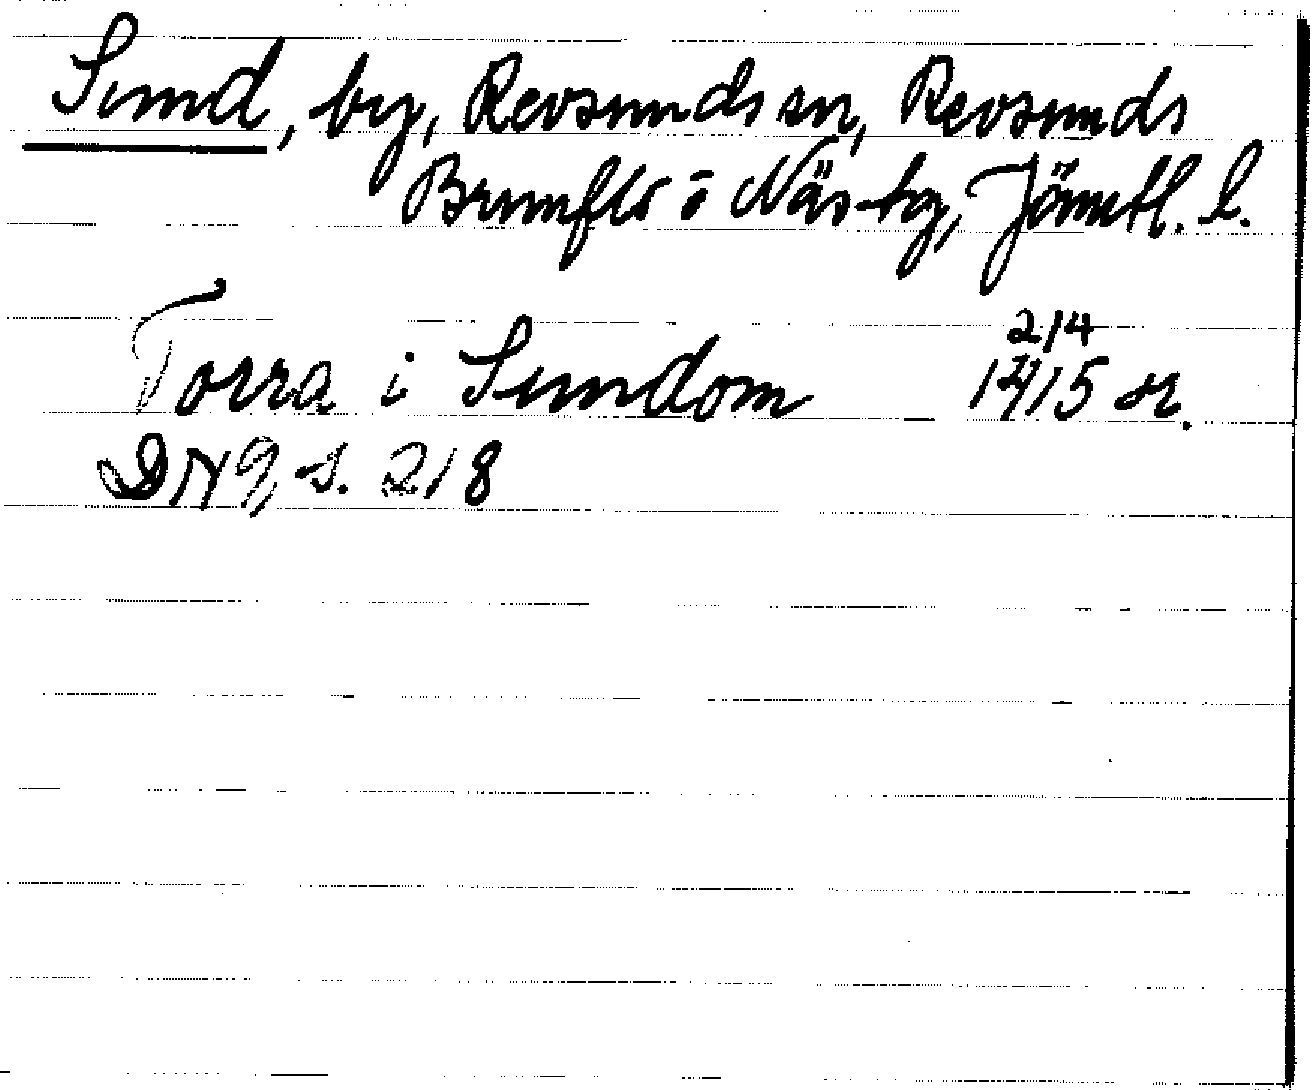 Sund, by, Revsunds sn, Revsunds
Brunflo o Näs tg, Jämtl. l.
Torra i Sundom 2/4 1415 or.
DN 9, s. 218